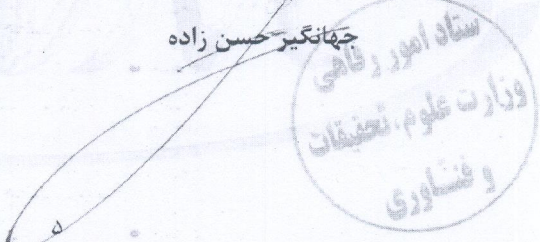 جهانگیر حسن زاده
ستاد امور رفاهی
وزارت علوم، تحقیقات
و فناوری
۵